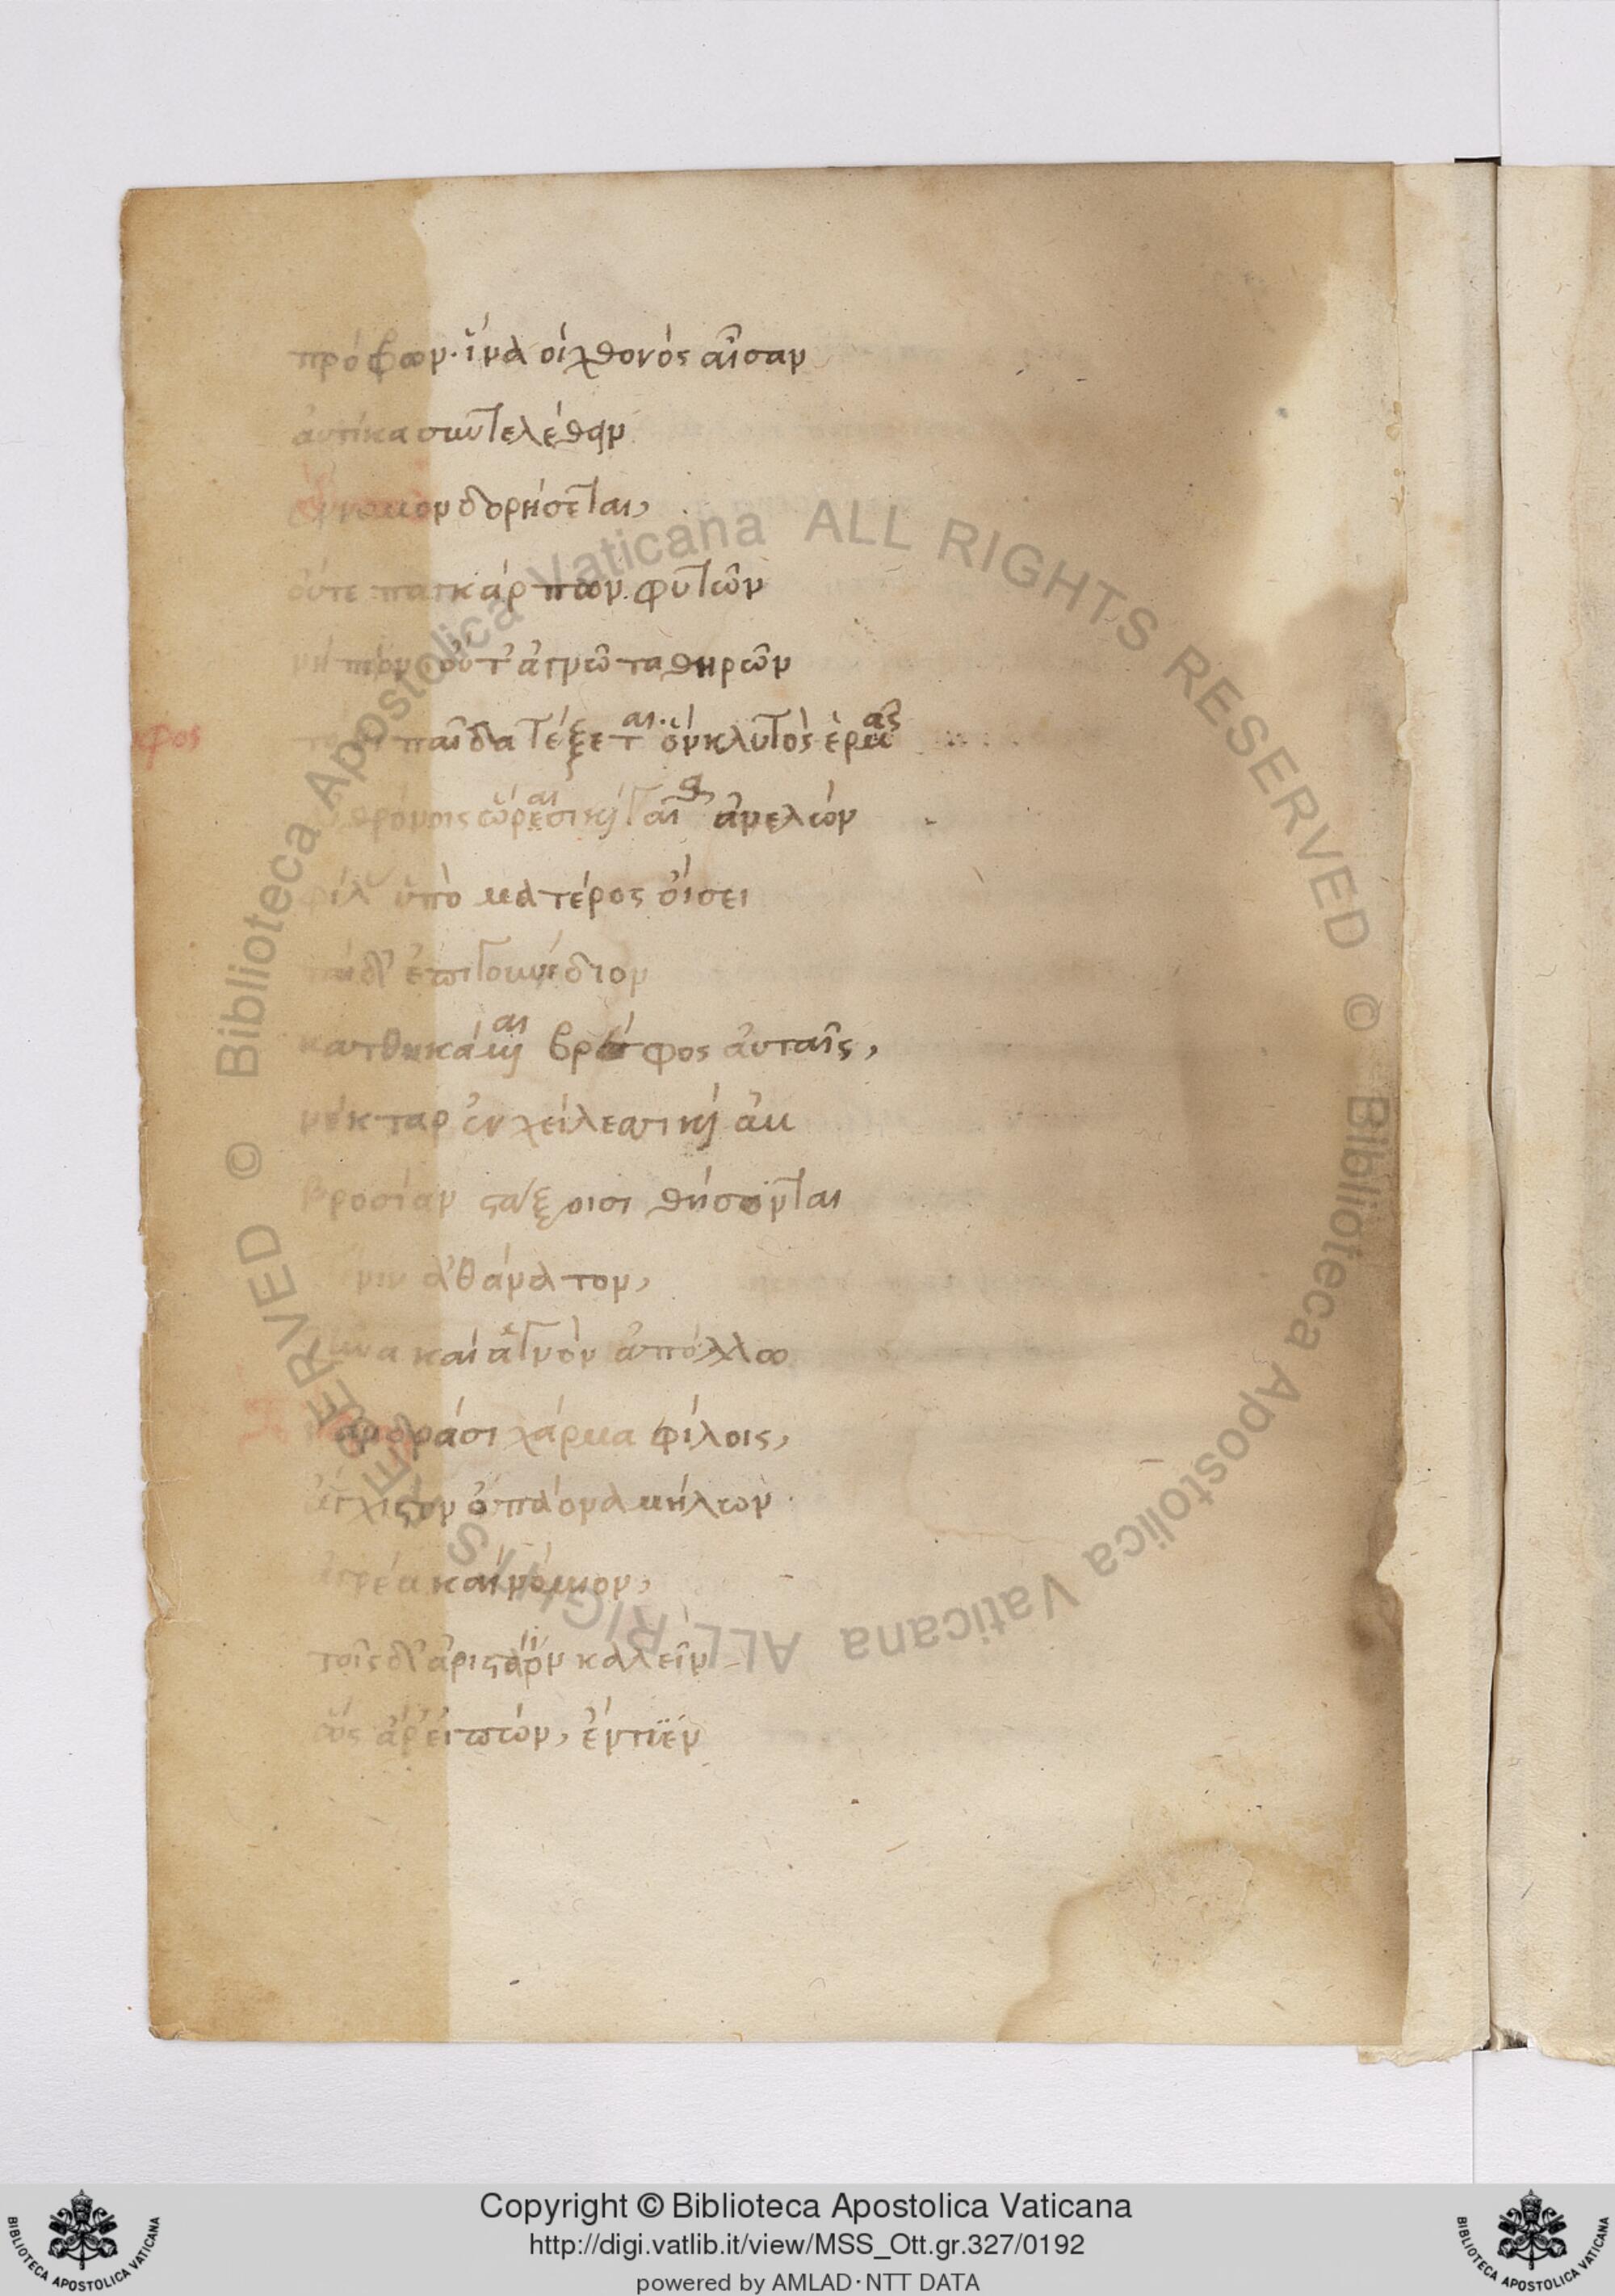 πρόφρων· ἵνα οἱ χθονὸς αἶσαν
ἀυτίκα συντελέθην
ἔννομον δορήσεται,
ὀύτε παγκάρπων φυτῶν
νήπιον οὐτ' ἀγνῶτα θηρῶν
παῖδα τέξεται· ὃν κλυτὸς ἑρμᾶς
θρόνοις ὥραισι καὶ γαῖ ἀνελὼν
φίλ ὑπὸ ματέρος ὄισει
ταὶ δ' ἐπιγουνίδιον
κατθηκάμεναι βρέφος ἀυταῖς,
νέκταρ ἐν χείλεσι καὶ ἀμ
βροσίαν στάξοισι θήσονται
νιν ἀθάνατον,
ζῆνα καὶ ἁγνὸν ἀπόλλω
ἀνδράσι χάρμα φίλοις,
ἄγχιστον ὀπάονα μήλων
ἀγρέα καὶ νόμιον,
τοῖς δ' ἀρισταῖον καλεῖν
ὣς ἄρ' ἐιπὼν, ἔντυεν
Biblioteca Apostolica Vaticana ALL RIGHTS RESERVED ©
Biblioteca Apostolica Vaticana ALL RIGHTS RESERVED ©
BIBLIOTECA APOSTOLICA VATICANA
Copyright © Biblioteca Apostolica Vaticana
http://digi.vatlib.it/view/MSS_Ott.gr.327/0192
powered by AMLAD·NTT DATA
BIBLIOTECA APOSTOLICA VATICANA